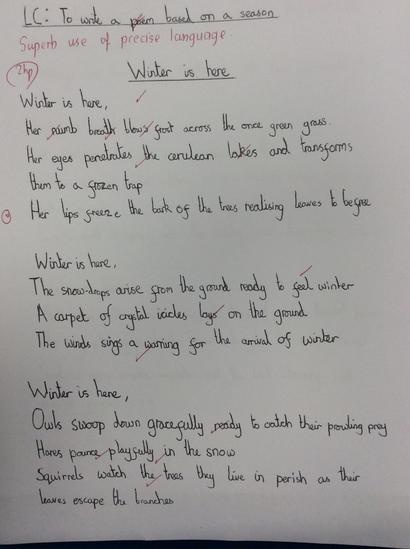 LC: To write a poem based on a season
Superb use of precise language.
2hp
Winter is here
Winter is here,
Her numb breath blows frost across the once green grass.
Her eyes penetrates the cerulean lakes and transforms
them to a frozen trap
Her lips freeze the bark of the trees realising leaves to be free
Winter is here,
The snow-drops arise from the ground ready to feel winter
A carpet of crystal icicles lays on the ground
The winds sings a warning for the arrival of winter
Winter is here,
Owls swoop down gracefully ready to catch their prowling prey
Hares pounce playfully in the snow
Squirrels watch the trees they live in perish as their
leaves escape the branches